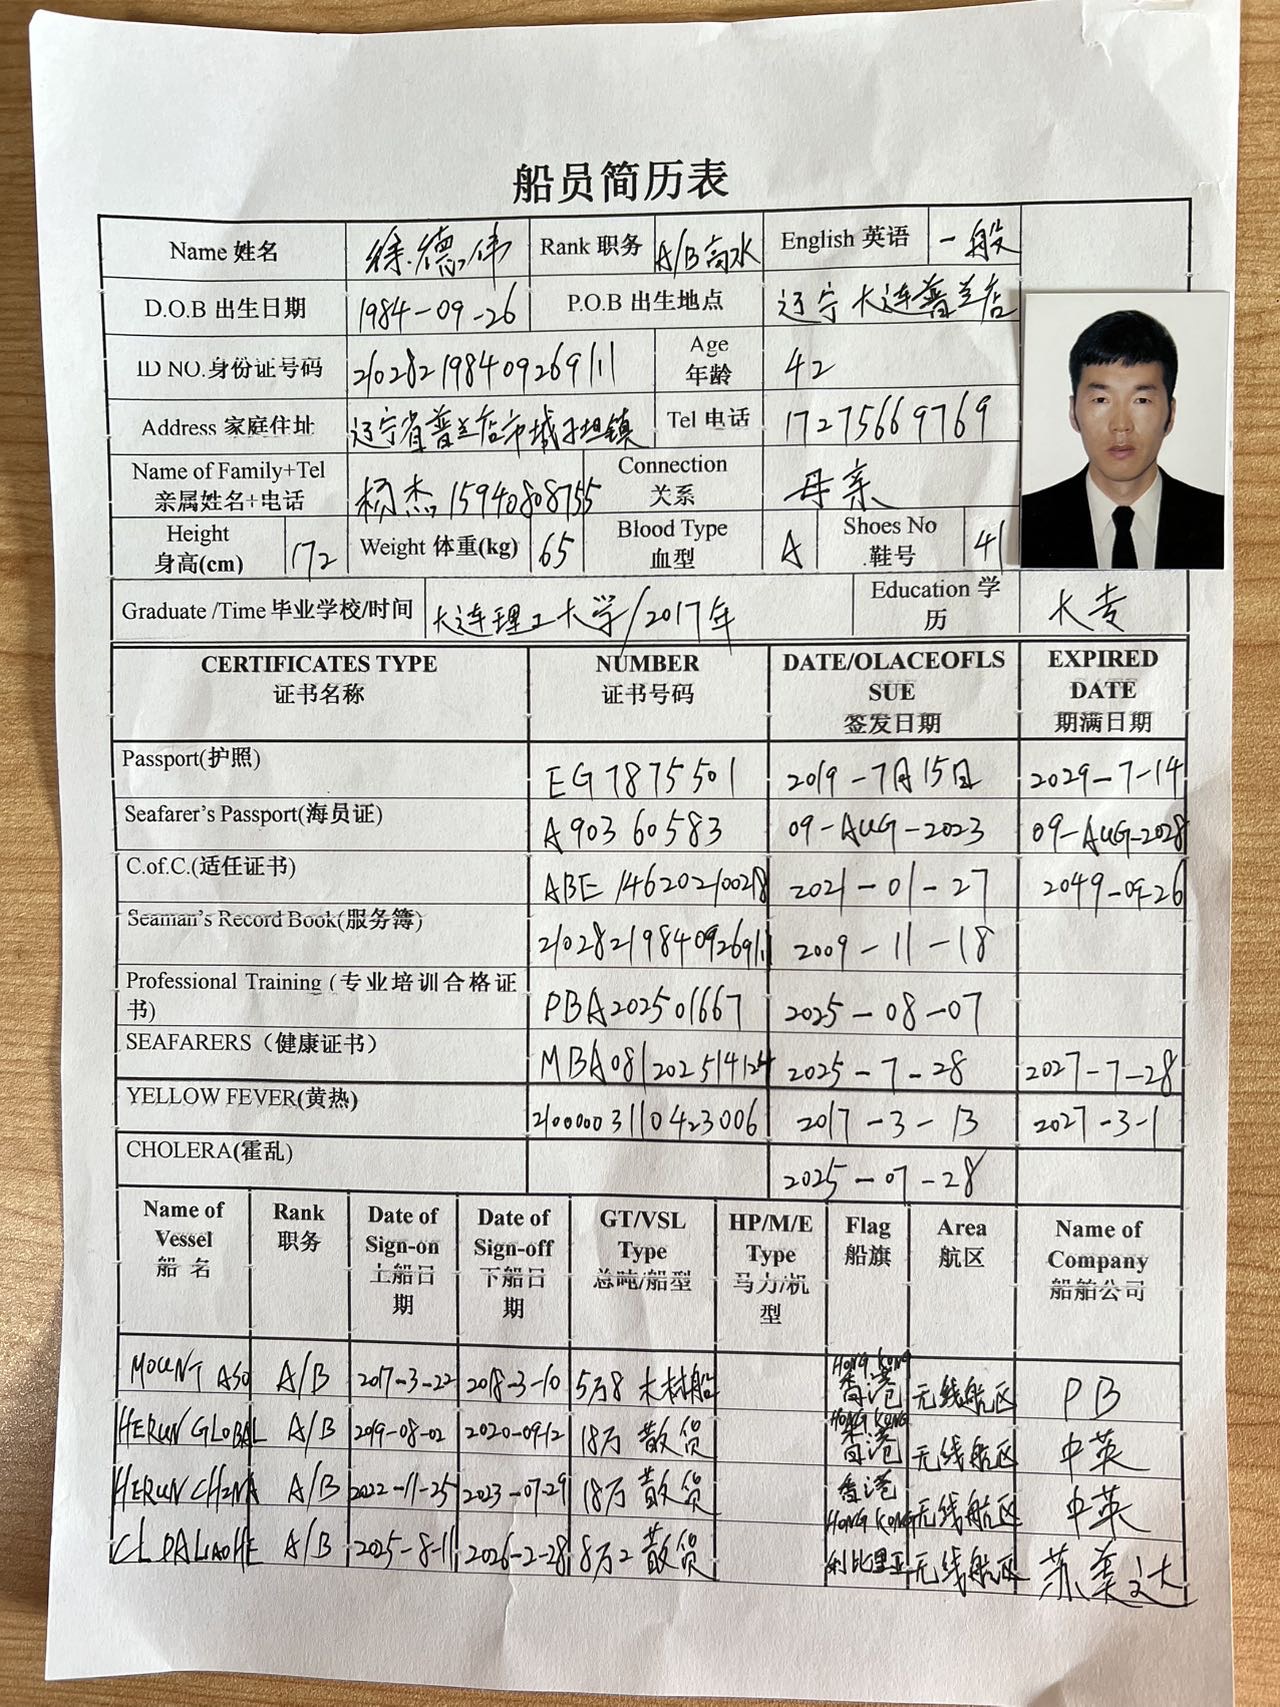 船员简历表
Name 姓名 徐德伟 Rank 职务 A/B高水 English 英语 一般
D.O.B 出生日期 1984-09-26 P.O.B 出生地点 辽宁大连普兰店
ID NO.身份证号码 210282198409269111 Age 年龄 42
Address 家庭住址 辽宁省普兰店市城子坦镇 Tel 电话 17275669769
Name of Family+Tel 亲属姓名+电话 杨杰 15940808755 Connection 关系 母亲
Height 身高(cm) 172 Weight 体重(kg) 65 Blood Type 血型 A Shoes No .鞋号 41
Graduate /Time 毕业学校/时间 大连理工大学/2017年 Education 学历 大专
CERTIFICATES TYPE 证书名称 NUMBER 证书号码 DATE/OLACEOFLS SUE 签发日期 EXPIRED DATE 期满日期
Passport(护照) EG7875501 2019-7月15日 2029-7-14
Seafarer's Passport(海员证) A90360583 09-AUG-2023 09-AUG-2028
C.of.C.(适任证书) ABE146202210028 2021-01-27 2049-09-26
Seaman's Record Book(服务簿) 210282198409269111 2009-11-18
Professional Training (专业培训合格证书) PBA202501667 2025-08-07
SEAFARERS（健康证书） MBA081202514124 2025-7-28 2027-7-28
YELLOW FEVER(黄热) 21000003110423006 2017-3-13 2027-3-1
CHOLERA(霍乱) 2025-07-28
Name of Vessel 船 名 Rank 职务 Date of Sign-on 上船日期 Date of Sign-off 下船日期 GT/VSL Type 总吨/船型 HP/M/E Type 马力/机型 Flag 船旗 Area 航区 Name of Company 船舶公司
MOUNT ASO A/B 2017-3-22 2018-3-10 5万8 木材船 HONG KONG 香港 无线航区 PB
HERUN GLOBAL A/B 2019-08-02 2020-09-12 18万 散货 HONG KONG 香港 无线航区 中英
HERUN CHINA A/B 2022-11-25 2023-07-29 18万 散货 香港 HONG KONG 无线航区 中英
CL DALIAOHE A/B 2025-8-11 2026-2-28 8万2 散货 利比里亚 无线航区 苏美达